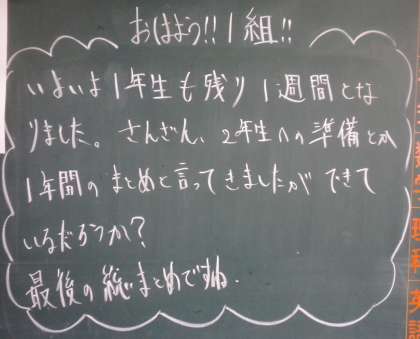 おはよう!!1組!!
いよいよ1年生も残り1週間とな
りました。さんざん、2年生への準備とか
1年間のまとめと言ってきましたが できて
いるだろうか?
最後の総まとめですね.
理科
英語